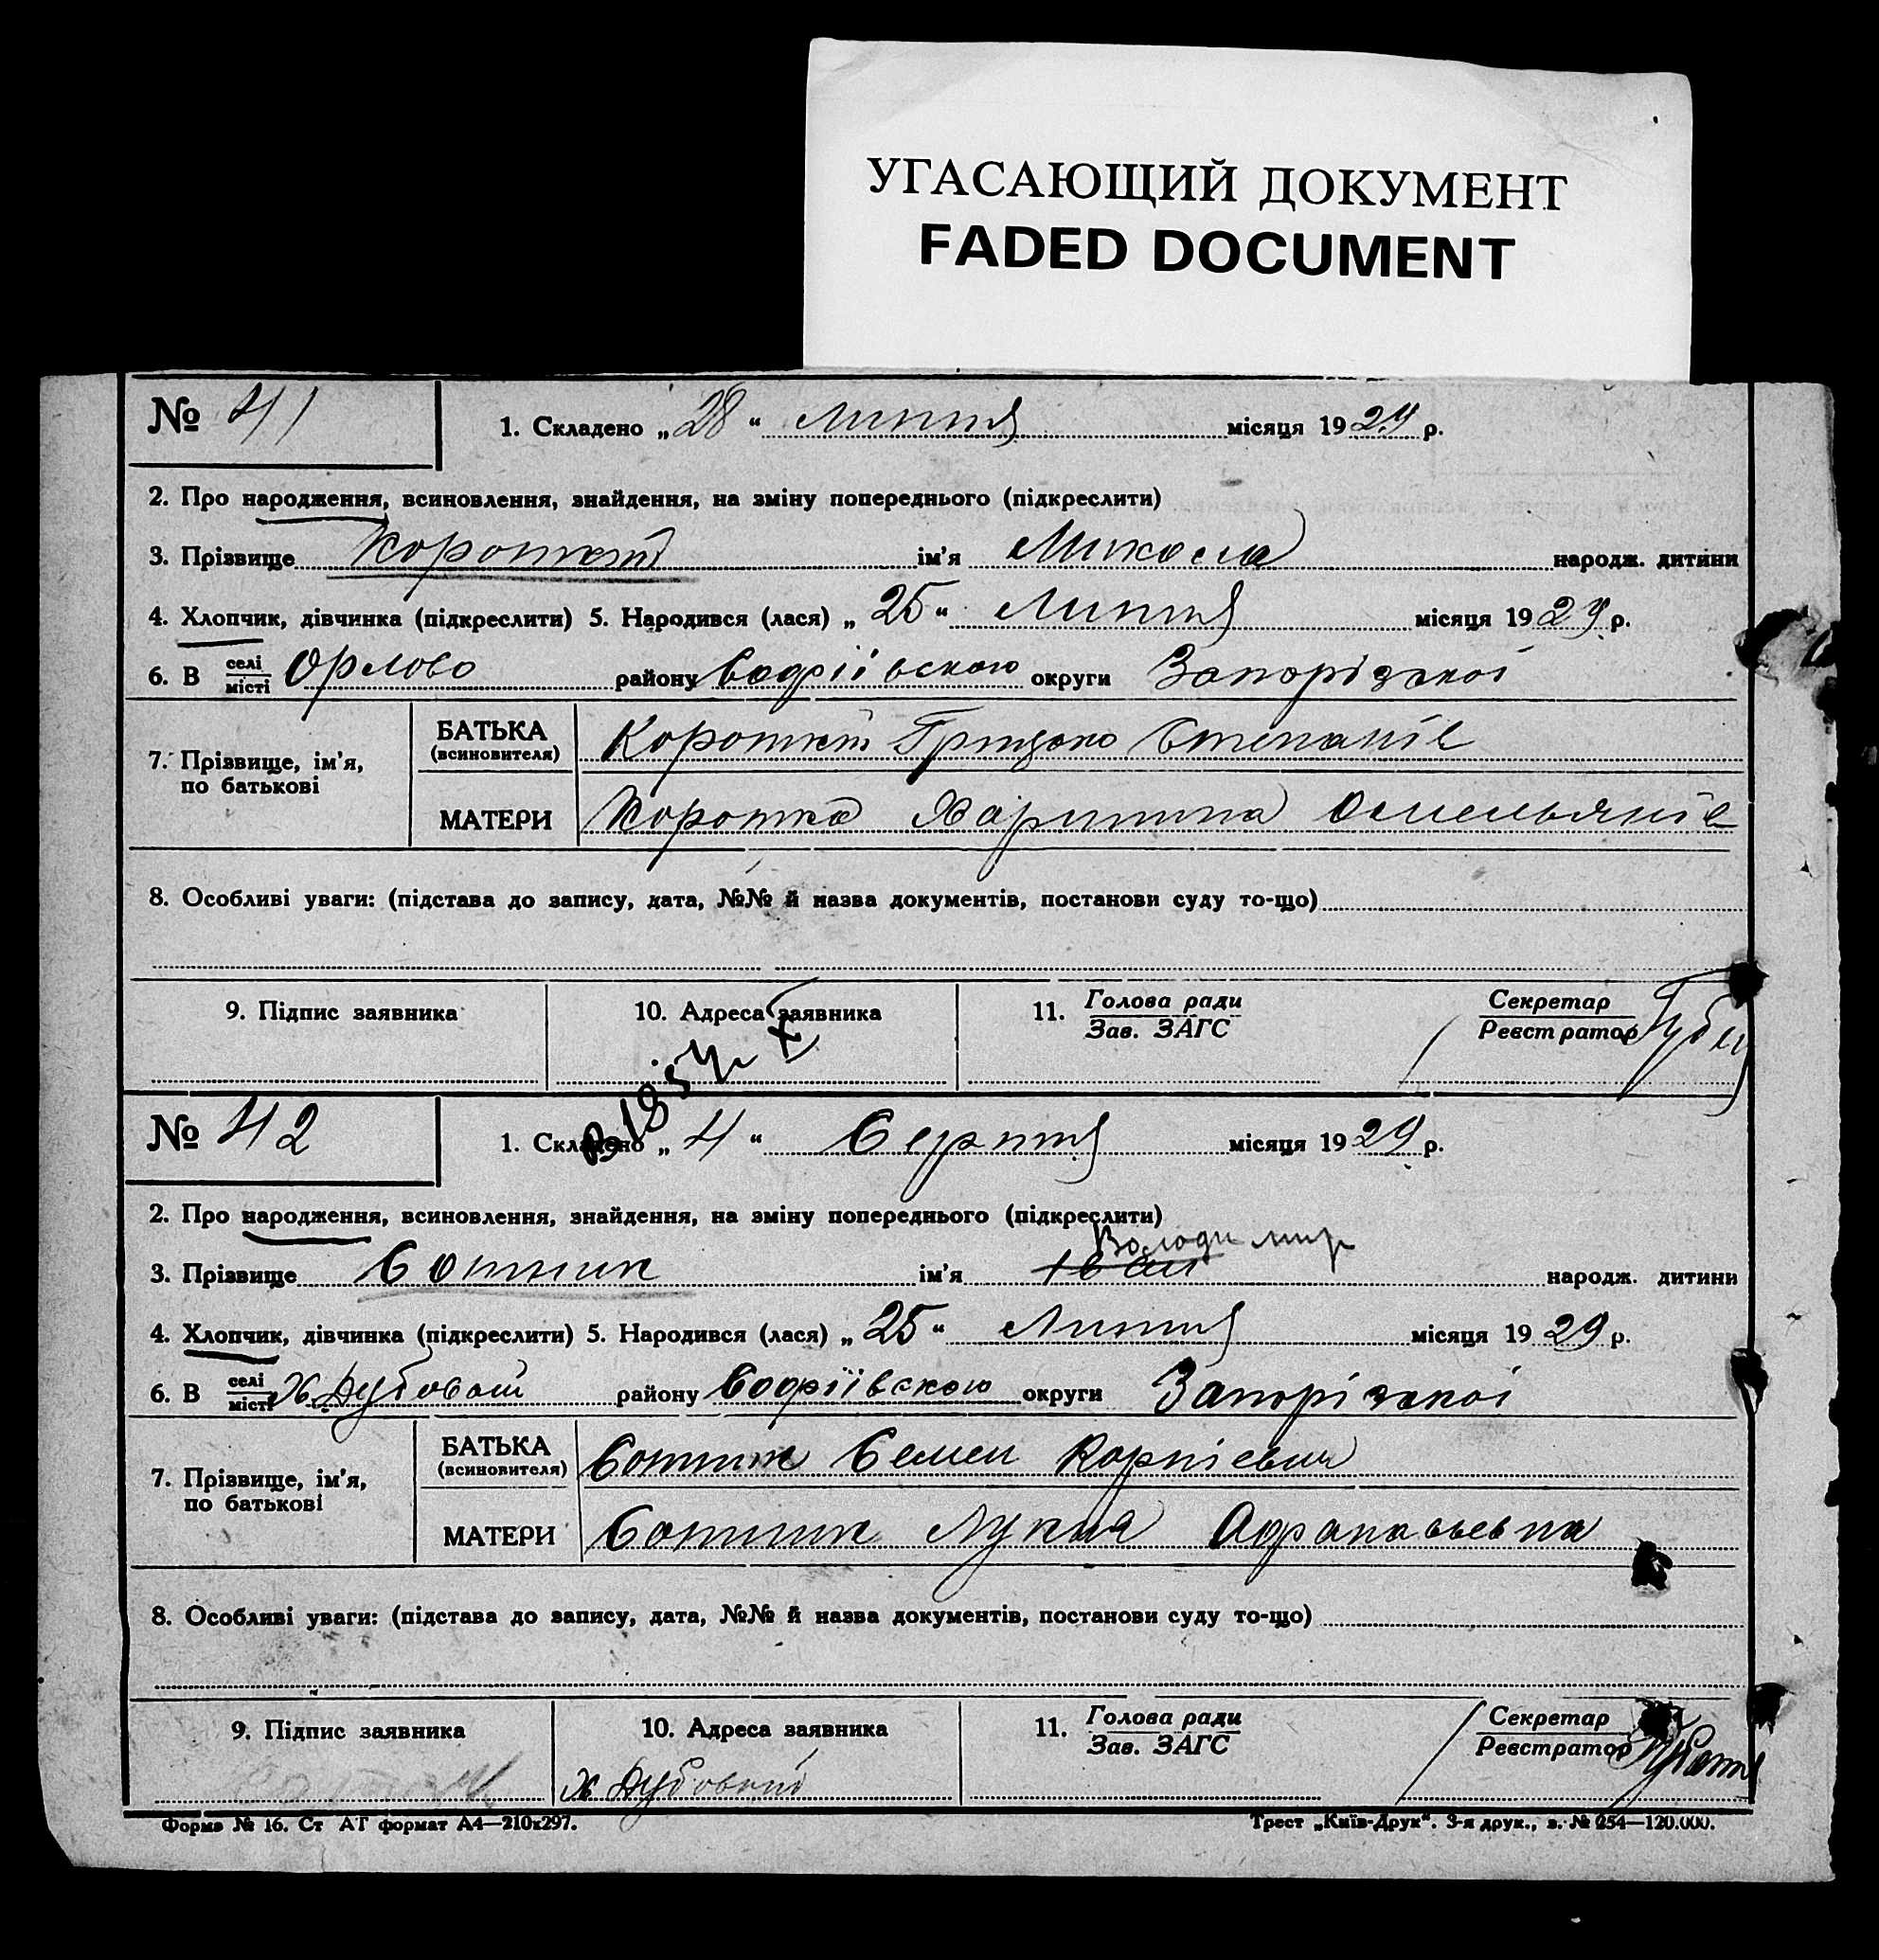 УГАСАЮЩИЙ ДОКУМЕНТ
FADED DOCUMENT
№ 41
1. Складено „28“ Липня місяця 1929 р.
2. Про народження, всиновлення, знайдення, на зміну попереднього (підкреслити)
3. Прізвище Короткий ім'я Микола народж. дитини
4. Хлопчик, дівчинка (підкреслити) 5. Народився (лася) „25“ Липня місяця 1929 р.
6. В селі місті Орлово району Софіївського округи Запорізської
7. Прізвище, ім'я, по батькові
БАТЬКА (всиновителя) Короткий Грицько Степанів
МАТЕРИ Коротка Харитина Омельянів
8. Особливі уваги: (підстава до запису, дата, №№ й назва документів, постанови суду то-що)
9. Підпис заявника
10. Адреса заявника
11. Голова ради Зав. ЗАГС
Секретар Реєстратор
№ 42
1. Складено „4“ Серпня місяця 1929 р.
2. Про народження, всиновлення, знайдення, на зміну попереднього (підкреслити)
Володимир
3. Прізвище Сотник ім'я Іван народж. дитини
4. Хлопчик, дівчинка (підкреслити) 5. Народився (лася) „25“ Липня місяця 1929 р.
6. В селі місті Х. Дубовий району Софіївского округи Запорізскої
7. Прізвище, ім'я, по батькові
БАТЬКА (всиновителя) Сотник Семен Корнієвич
МАТЕРИ Сотник Лукия
8. Особливі уваги: (підстава до запису, дата, №№ й назва документів, постанови суду то-що)
9. Підпис заявника
10. Адреса заявника
х Дубовский
11. Голова ради Зав. ЗАГС
Секретар Реєстратор
Форма № 16. Ст АГ формат А4—210x297.
Трест „Київ-Друк“. 3-я друк., з. № 254—120.000.